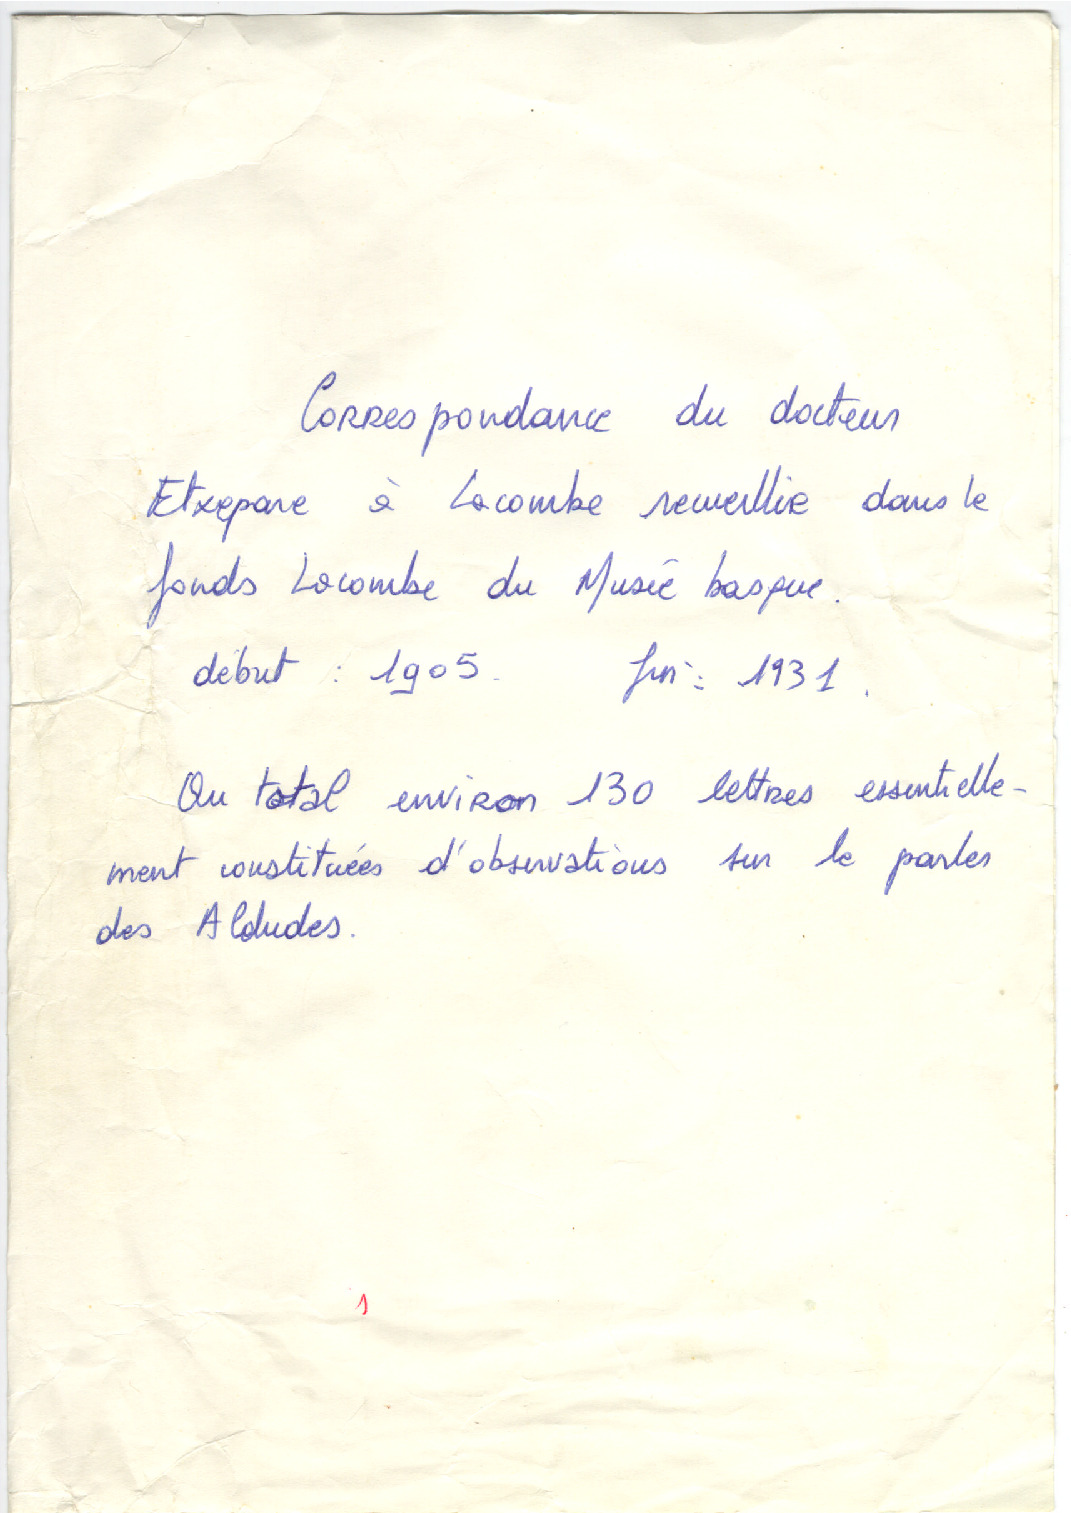 Correspondance du docteur
Etxepare à Lacombe recueillie dans le
fonds Lacombe du Musée basque.
début : 1905. fin : 1931.
Au total environ 130 lettres essentielle-
ment constituées d'observations sur le parler
des Aldudes.
1